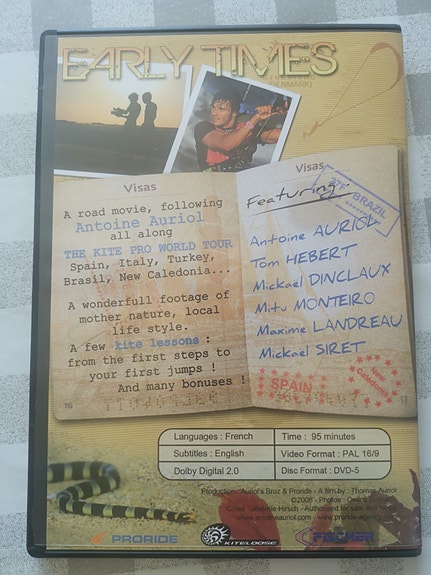 EARLY TIMES
Visas
A road movie, following
Antoine Auriol
all along
THE KITE PRO WORLD TOUR
Spain, Italy, Turkey,
Brasil, New Caledonia...
A wonderfull footage of
mother nature, local
life style.
A few kite lessons :
from the first steps to
your first jumps !
And many bonuses !
16
Visas
Featuring
BRAZIL
Antoine AURIOL
Tom HEBERT
Mickael DINCLAUX
Mitu MONTEIRO
Maxime LANDREAU
Mickael SIRET
SPAIN
New
Caledonia
Languages : French
Time : 95 minutes
Subtitles : English
Video Format : PAL 16/9
Dolby Digital 2.0
Disc Format : DVD-5
Production : Auriol's Broz & Proride - A film by : Thomas Auriol
©2008 - Photos :
Jérémie Hirsch -
PRORIDE
KITELOOSE
FISCHER